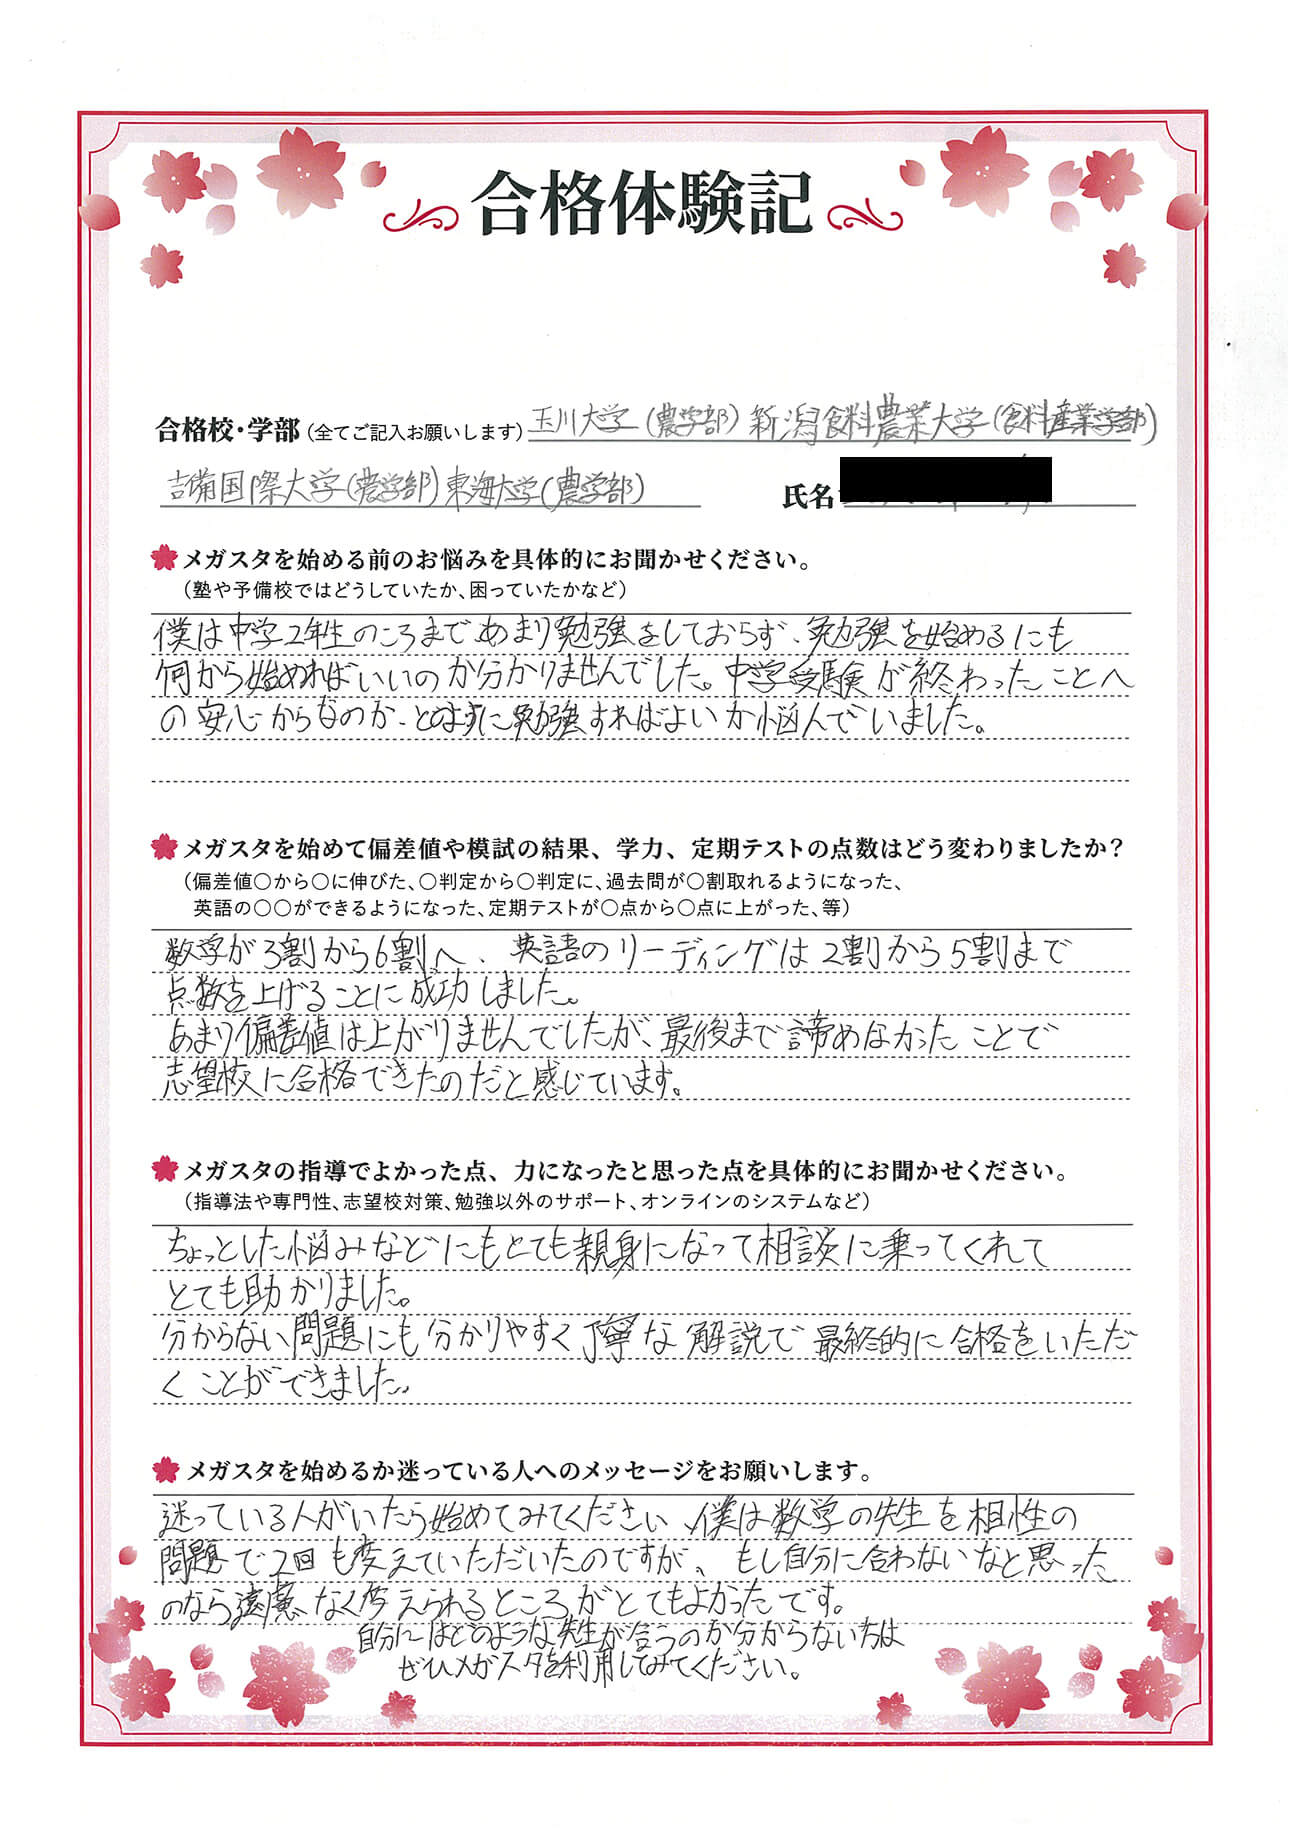 合格体験記
合格校・学部(全てご記入お願いします) 玉川大学(農学部) 新潟食料農業大学(食料産業学部)
吉備国際大学(農学部) 東海大学(農学部) 氏名
メガスタを始める前のお悩みを具体的にお聞かせください。
(塾や予備校ではどうしていたか、困っていたかなど)
僕は中学2年生のころまであまり勉強をしておらず、勉強を始めるにも
何から始めればいいのか分かりませんでした。中学受験が終わったことへ
の安心からなのか、どのように勉強すればよいか悩んでいました。
メガスタを始めて偏差値や模試の結果、学力、定期テストの点数はどう変わりましたか?
(偏差値〇から〇に伸びた、〇判定から〇判定に、過去問が〇割取れるようになった、
英語の〇〇ができるようになった、定期テストが〇点から〇点に上がった、等)
数学が3割から6割へ、英語のリーディングは2割から5割まで
点数を上げることに成功しました。
あまり偏差値は上がりませんでしたが、最後まで諦めなかったことで
志望校に合格できたのだと感じています。
メガスタの指導でよかった点、力になったと思った点を具体的にお聞かせください。
(指導法や専門性、志望校対策、勉強以外のサポート、オンラインのシステムなど)
ちょっとした悩みなどにもとても親身になって相談に乗ってくれて
とても助かりました。
分からない問題にも分かりやすく丁寧な解説で最終的に合格をいただ
くことができました。
メガスタを始めるか迷っている人へのメッセージをお願いします。
迷っている人がいたら始めてみてください、僕は数学の先生を相性の
問題で2回も変えていただいたのですが、もし自分に合わないなと思った
のなら遠慮なく変えられるところがとてもよかったです。
自分にはどのような先生が合うのか分からない
ぜひメガスタを利用してみてください。